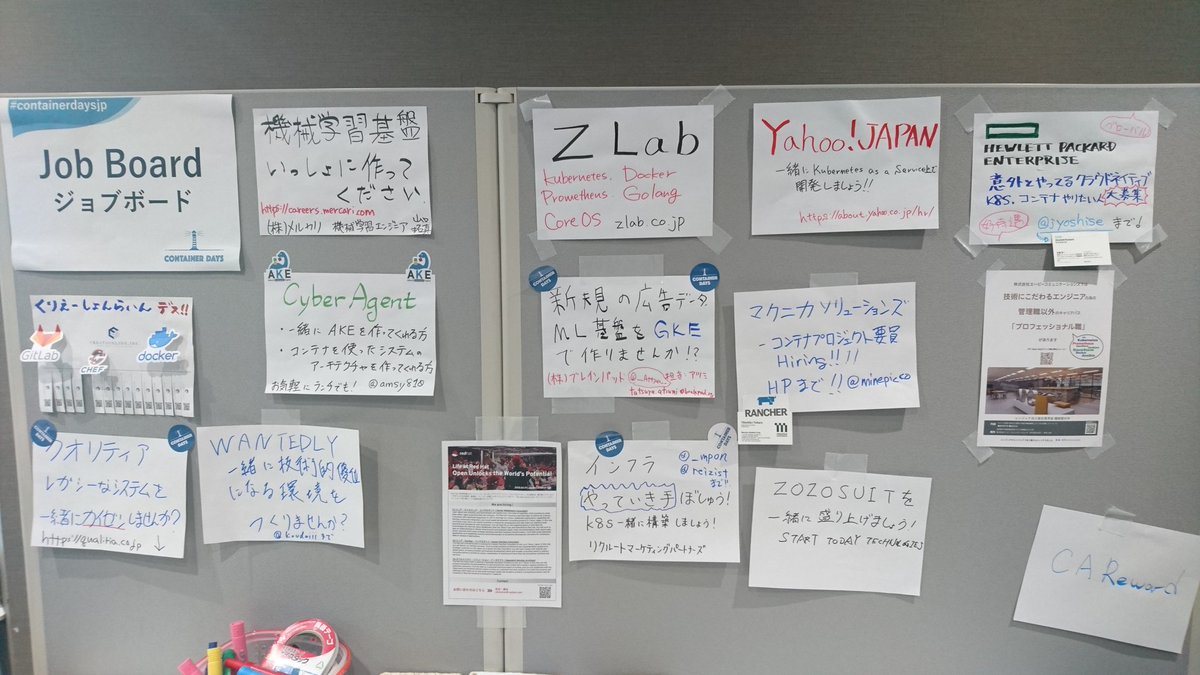 #containerdaysjp
Job Board
ジョブボード
CONTAINER DAYS
機械学習基盤
いっしょに作って
ください
https://careers.mercari.com
(株)メルカリ 機械学習エンジニア
Z Lab
kubernetes. Docker
Prometheus. Golang
CoreOS zlab.co.jp
Yahoo!JAPAN
一緒に Kubernetes as a Service
開発しましょう!!
https://about.yahoo.co.jp/hr/
グローバル
HEWLETT PACKARD
ENTERPRISE
意外とやってるクラウドネイティブ
K8S.コンテナやりたい人大募集
好待遇 @jyoshise まで♩
くりえーしょんらいん デス!!
GitLab
CHEF
docker
AKE
AKE
CyberAgent
・一緒に AKEを作ってくれる方
・コンテナを使ったシステムの
アーキテクチャを作ってくれる方
お気軽にランチでも! @amsy810
CONTAINER
DAYS
新規の広告データ
ML基盤をGKE
で作りませんか!?
(株)ブレインパッド
マクニカソリューションズ
- コンテナプロジェクト要員
Hiring!!!!
HPまで!! @minepicco
RANCHER
技術にこだわるエンジニア
管理職以外のキャリアパス
「プロフェッショナル職」
があります
クオリティア
レガシーなシステムを
一緒にカイゼンしませんか?
https://qualitia.co.jp ↓
WANTEDLY
一緒に技術的優位
になる環境を
つくりませんか?
Life at Red Hat
Open Unlocks the World's Potential
CONTAINER
DAYS
インフラ
@_mpon
@reizist
まで
やっていき手ぼしゅう!
K8S一緒に構築しましょう!
リクルートマーケティングパートナーズ
ZOZOSUITを
一緒に盛り上げましょう!
START TODAY TECHNOLOGIES
CA Reward